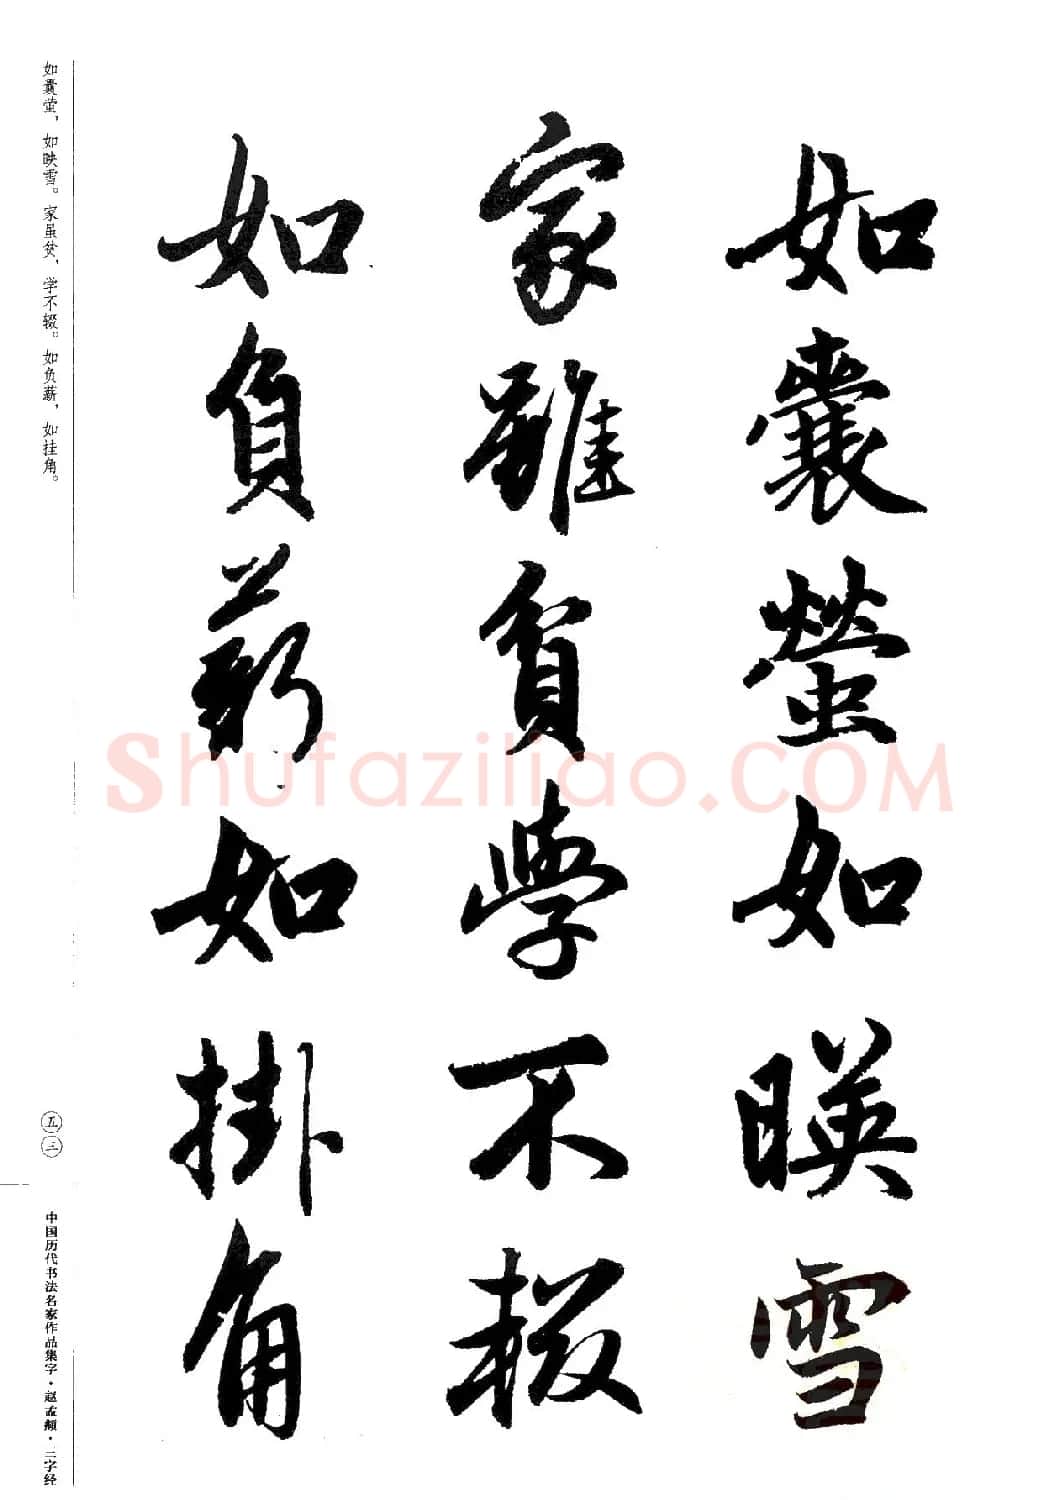 如囊螢如暎雪
家雖貧學不輟
如負薪如掛角
如囊萤，如映雪。家虽贫，学不辍。如负薪，如挂角。
五三
中国历代书法名家作品集字·赵孟頫·三字经
Shufaziliao.COM